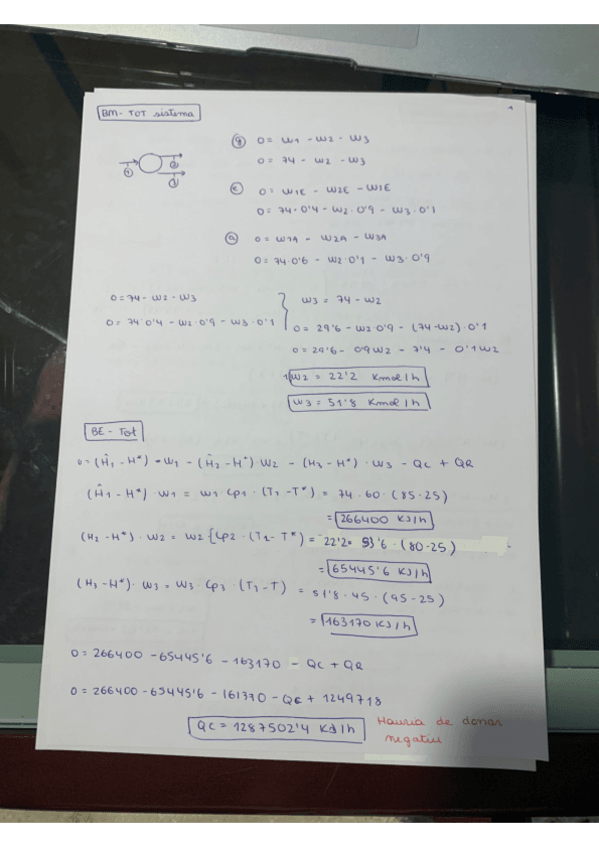 BM - TOT sistema
① ② ③
ⓖ 0 = w1 - w2 - w3
0 = 74 - w2 - w3
ⓔ 0 = w1E - w2E - w1E
0 = 74·0'4 - w2·0'9 - w3·0'1
ⓐ 0 = w1A - w2A - w3A
0 = 74·0'6 - w2·0'1 - w3·0'9
0 = 74 - w2 - w3
0 = 74·0'4 - w2·0'9 - w3·0'1
w3 = 74 - w2
0 = 29'6 - w2·0'9 - (74-w2)·0'1
0 = 29'6 - 0'9w2 - 7'4 - 0'1w2
1w2 = 22'2 Kmol/h
w3 = 51'8 Kmol/h
BE - Tot
0 = (Ĥ1 - H*)·w1 - (Ĥ2 - H*)·w2 - (H3 - H*)·w3 - QC + QR
(Ĥ1 - H*)·w1 = w1·Cp1·(T1 - T*) = 74·60·(85-25)
= 266400 KJ/h
(H2 - H*)·w2 = w2{Cp2·(T2 - T*) = 22'2· 53'6·(80-25)
= 65445'6 KJ/h
(H3 - H*)·w3 = w3·Cp3·(T3 - T) = 51'8·45·(95-25)
= 163170 KJ/h
0 = 266400 - 65445'6 - 163170 - QC + QR
0 = 266400 - 65445'6 - 161370 - QC + 1249718
QC = 1287502'4 KJ/h
Hauria de donar
negatiu